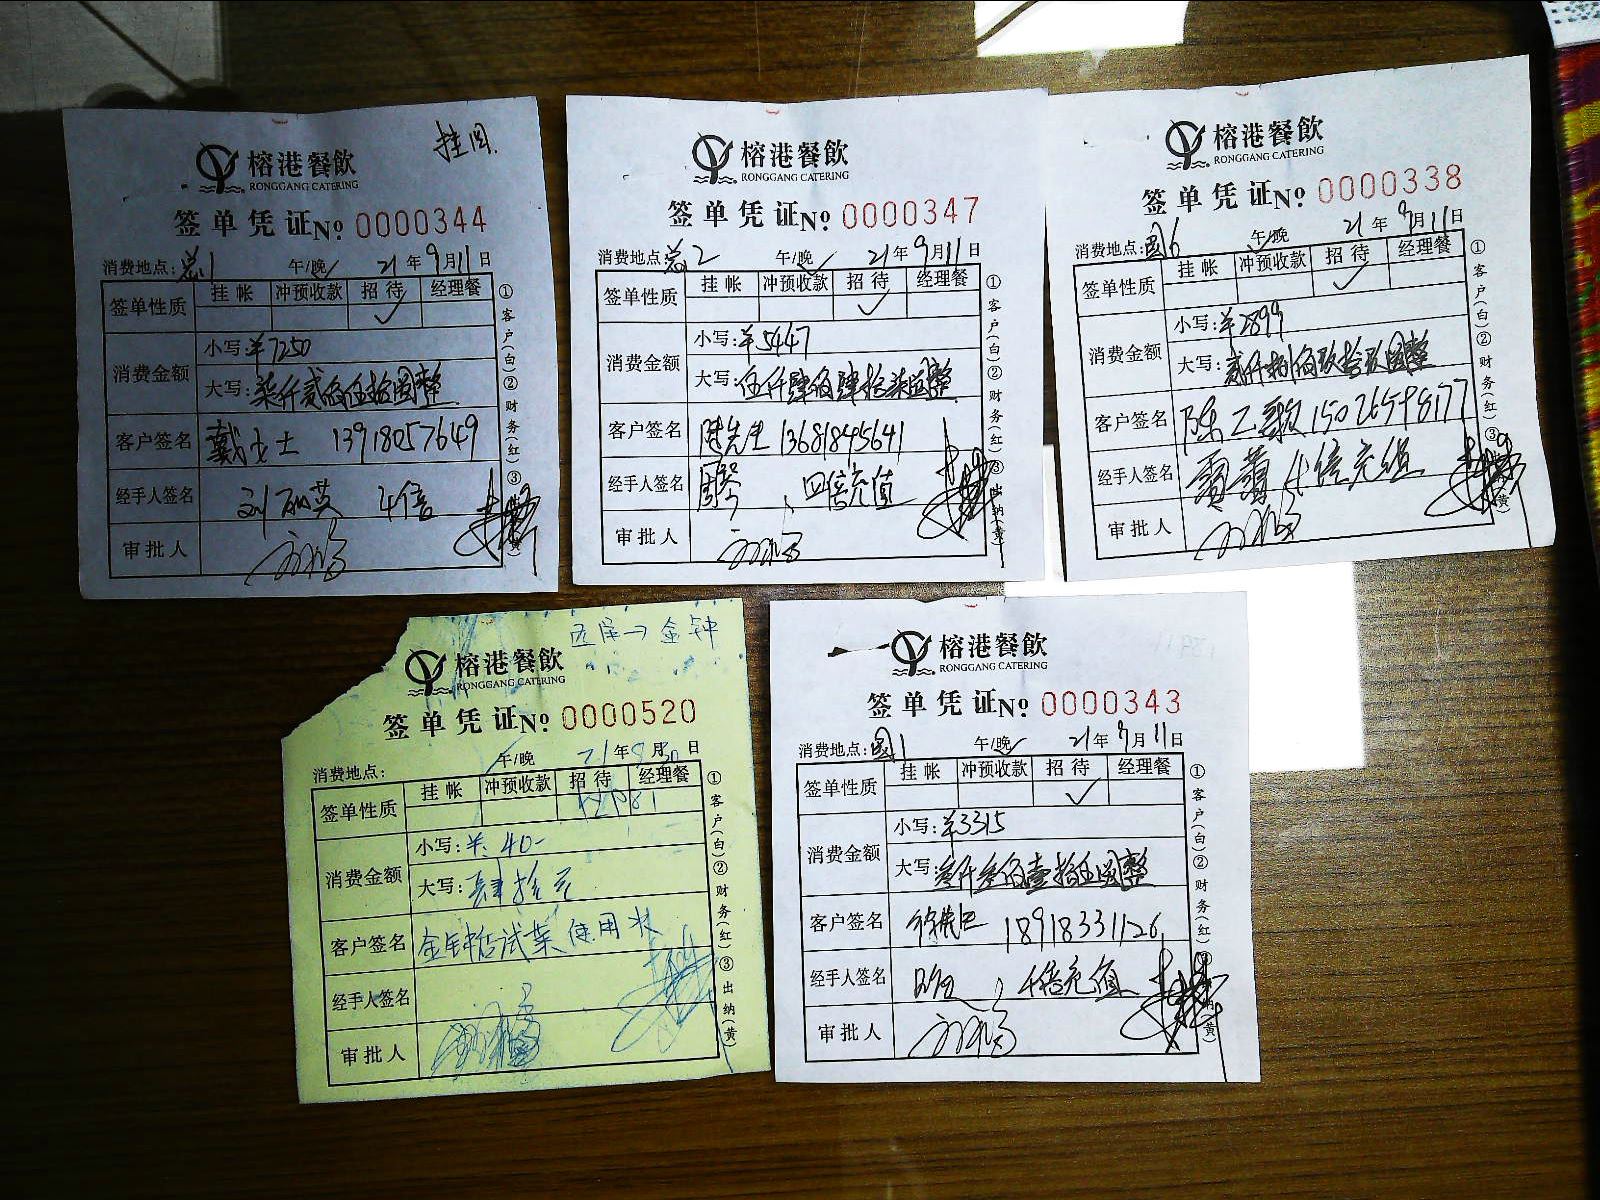 挂园
榕港餐飲
RONGGANG CATERING
签单凭证 No 0000344
消费地点: 1 午/晚 21年9月11日
签单性质 挂帐 冲预收款 招待 经理餐
✓
消费金额 小写:¥7250
大写:柒仟贰佰伍拾圆整
客户签名 戴女士 13918057649
经手人签名 刘丽英 4倍
审批人
①客户(白)②财务(红)③出纳(黄)
榕港餐飲
RONGGANG CATERING
签单凭证 No 0000347
消费地点: 2 午/晚 21年9月11日
签单性质 挂帐 冲预收款 招待 经理餐
✓
消费金额 小写:¥5447
大写:伍仟肆佰肆拾柒圆整
客户签名 陆先生 13681845641
经手人签名 周琴、四倍充值
审批人
①客户(白)②财务(红)③出纳(黄)
榕港餐飲
RONGGANG CATERING
签单凭证 No 0000338
消费地点:国6 午/晚 21年9月11日
签单性质 挂帐 冲预收款 招待 经理餐
✓
消费金额 小写:¥2899
大写:贰仟捌佰玖拾玖圆整
客户签名 陈 15026598177
经手人签名 4倍充值
审批人
①客户(白)②财务(红)③出纳(黄)
金钟
榕港餐飲
RONGGANG CATERING
签单凭证 No 0000520
消费地点: 午/晚 21年8月30日
签单性质 挂帐 冲预收款 招待 经理餐
消费金额 小写:¥:40-
大写:肆拾元
客户签名 金钟店试菜使用
经手人签名
审批人
①客户(白)②财务(红)③出纳(黄)
榕港餐飲
RONGGANG CATERING
签单凭证 No 0000343
消费地点:国1 午/晚 21年9月11日
签单性质 挂帐 冲预收款 招待 经理餐
✓
消费金额 小写:¥3315
大写:叁仟叁佰壹拾伍圆整
客户签名 徐 18918331126
经手人签名 4倍充值
审批人
①客户(白)②财务(红)③出纳(黄)